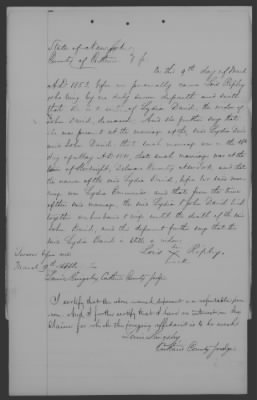 State of New York
County of
On this 9th day of March
A.D. 1853 before me personally came Lois Ripley
who being by me duly sworn deposeth and saith
that she is a sister of Lydia David, the widow of
John David, deceased. And she further says that
she was present at the marriage of the said Lydia David
and John David. that such marriage was on the
day of May A.D. such marriage was at the
town of Delaware County New York, and that
the name of the said Lydia David, before her said marriage
was Lydia and that from the time
of their said marriage the said Lydia & John David lived
together as husband & wife until the death of the said
John David, and this deponent further says that the
said Lydia David is still a widow.
Lois X Ripley
mark
Sworn before me
March 9th
Kingsley County Judge
I certify that the above named deponent is a respectable person
and I further certify that I have no interest in the
claim for which the foregoing affidavit is to be used
Kingsley
County Judge